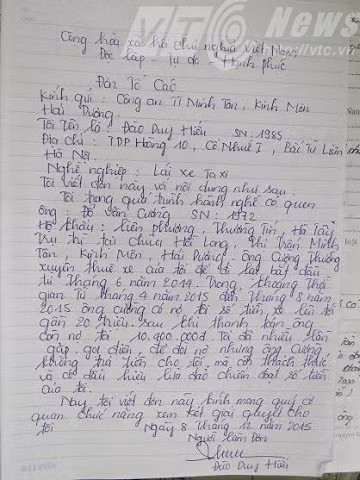 VTC News
http://vtc.vn
Cộng hòa xã hội chủ nghĩa Việt Nam
Độc lập Tự do Hạnh phúc
Đơn Tố Cáo
Kính gửi : Công an TT Minh Tân, Kinh Môn
Hải Dương.
Tôi tên là : Đào Duy Hiếu SN: 1985
Địa chỉ : TDP Hoàng 10, Cổ Nhuế 1, Bắc Từ Liêm
Hà Nội.
Nghề nghiệp : Lái xe Taxi
Tôi viết đơn này với nội dung như sau.
Tôi trong quá trình hành nghề có quen
ông : Đỗ Văn Cường SN : 1972
Hộ khẩu : Liên phương, Thường Tín, Hà Tây
Trụ trì tại chùa Hải Long, Thị Trấn Minh
Tân, Kinh Môn, Hải Dương. Ông Cường thường
xuyên thuê xe của tôi để đi lại, bắt đầu
từ tháng 6 năm 2014. Trong khoảng thời
gian từ tháng 4 năm 2015 đến tháng 8 năm
2015 ông cường có nợ tôi số tiền xe lên tới
gần 20 triệu. Sau khi thanh toán ông
còn nợ tôi 10.400.000đ. Tôi đã nhiều lần
gặp, gọi điện, để đòi nợ nhưng ông Cường
không trả tiền cho tôi, mà còn thách thức
và có dấu hiệu lừa đảo chiếm đoạt số tiền
của tôi.
Nay tôi viết đơn này kính mong quý cơ
quan chức năng xem xét giải quyết cho
tôi Ngày 8 tháng 12 năm 2015
Người làm đơn
Đào Duy Hiếu